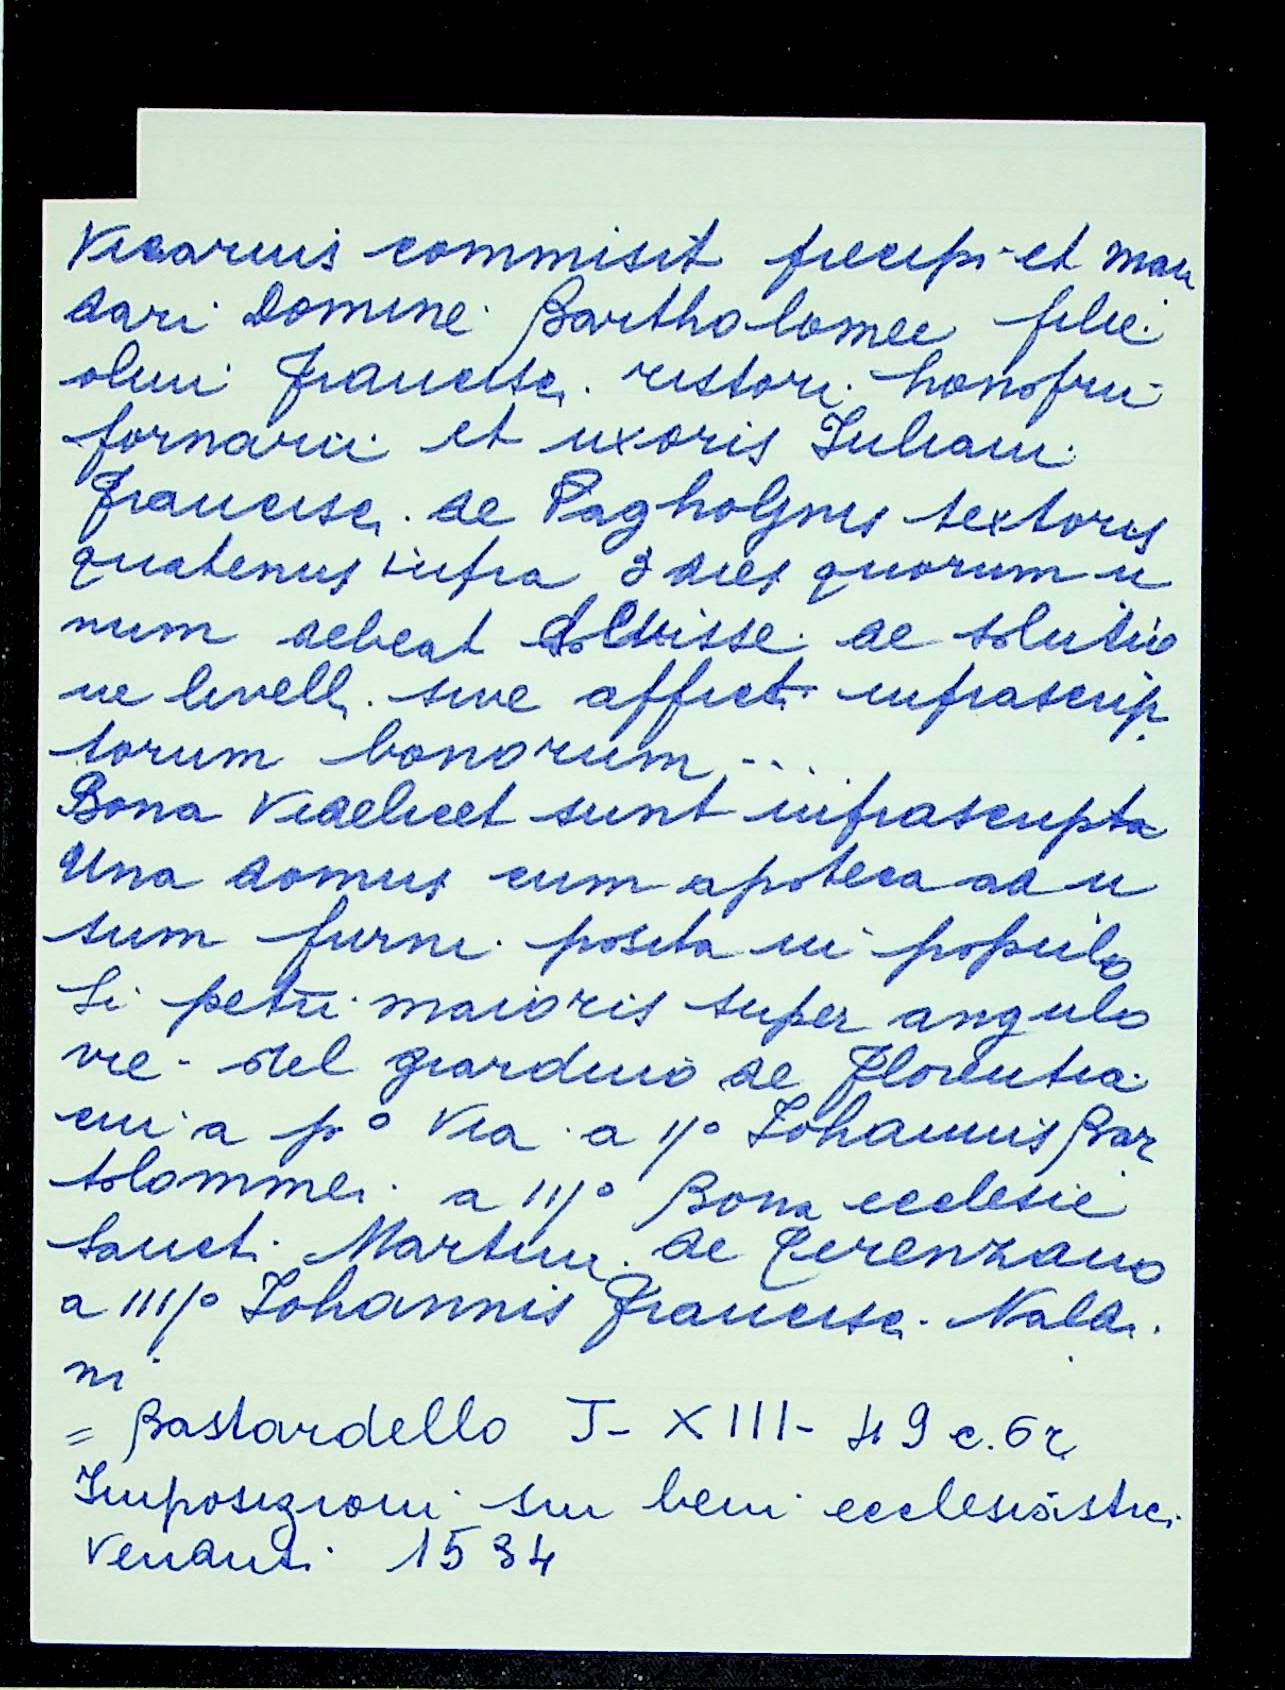 Vicarius commisit precipi et man
dari Domine Bartholomee filie
olim Francisci ristori honofrii
fornarii et uxoris Iuliani
Francisci de Pagholinis textoris
quatenus infra 3 dies quorum u
num debeat solvisse de solutio
ne livelli sive afficti infrascrip
torum bonorum ....
Bona videlicet sunt infrascripta
Una domus cum apoteca ad u
sum furni posita in populo
Si petri maioris super angulo
vie del giardino de Florentia
cui a po via a IIo Iohannis Bar
tolommei a IIIo Bona ecclesie
Sancti Martini de Terenzano
a IIIIo Iohannis Francisci Naldi
ni
= Bastardello J- XIII- 49 c. 6r
Imposizioni sui beni ecclesiastici
Venduti 1534